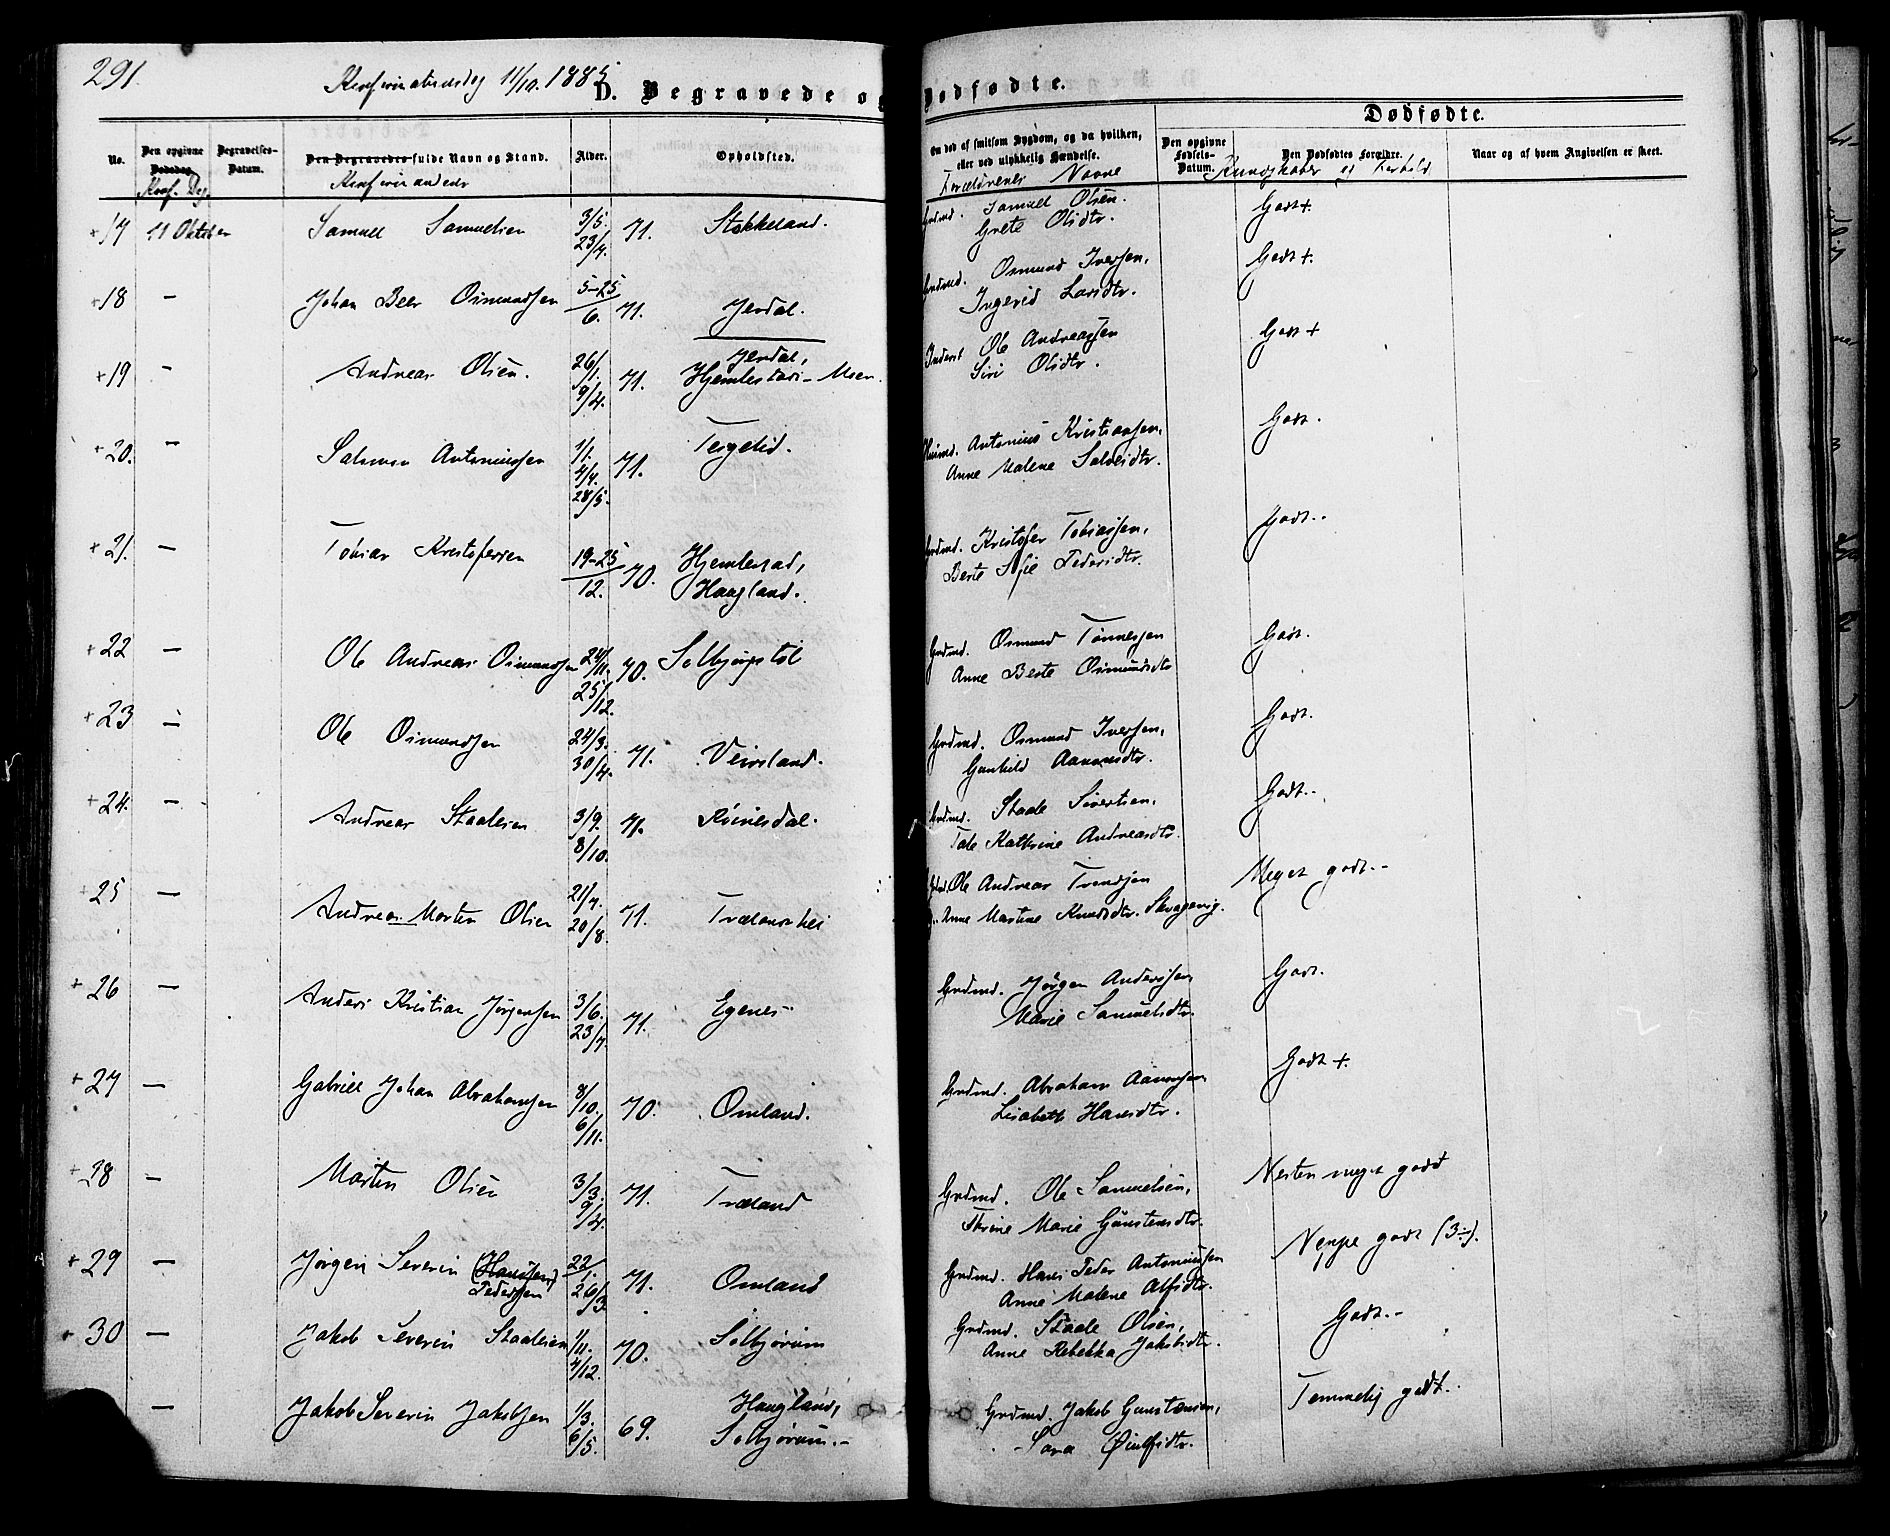 291.
Konfirmationsdag 11/10. 1885
D. Begravede og Dødfødte.
Dødfødte.
No.
Den opgivne Dødsdag.
Konf. Dag.
Begravelses-Datum.
Den Begravedes fulde Navn og Stand.
Konfirmandens
Alder.
Opholdssted.
Om død af smitsom Sygdom, og da hvilken, eller ved ulykkelig Hændelse.
Forældrenes Navne
Den opgivne Fødsels-Datum.
Den Dødfødtes Forældre.
Kundskaber og Forhold
Naar og af hvem Angivelsen er skeet.
+17 11 Oktober Samuel Samuelsen 3/5. 23/4. 71. Stokkeland. Grdmd. Samuel Olsen. Godt +.
Grete Olsdtr.
+18 — Johan Beer Osmundsen 5–25/6. 71. Jerdal. Grdmd. Osmund Iversen, Godt +.
Ingerid Larsdtr.
+19 — Andreas Olsen. 26/1. 9/4. 71. Jerdal, Inderst Ole Andreassen Godt +
Siri Olsdtr.
+20. — Salomon Antoniussen 1/1. 4/4. 28/5. 71. Antonius Kristiansen, Godt.
Anne Malene Salvesdtr.
+21. — Tobias Kristofersen 19–25/12. 70. Grdmd. Kristofer Tobiassen, Godt.-
Haagland. Berte Sofie Pedersdtr.
+22 — Ole Andreas Osmundsen 24/11. 25/12. 70. Grdmd. Osmund Tønnessen Godt.
Anne Berte Osmundsdtr
+23 — Ole Osmundsen 24/3. 30/4. 71. Veirsland. Grdmd. Osmund Iversen, Godt.
Gunhild Aanensdtr.
+24. — Andreas Staalesen 3/9. 8/10. 71. Grdmd. Staale Sivertsen, Godt.-
Tale Kathrine Andreasdtr.
+25 — Andreas Morten Olsen 21/7. 20/8. 71. Grdmd. Ole Andreas Meget godt.-
Anne Martine Knudsdtr.
+26 — Anders Kristian Jørgensen 3/6. 23/7. 71. Egenes Grdmd. Jørgen Anderssen Godt.
Marie Samuelsdtr.
+27 — Gabriel Johan Abrahamsen 8/10. 6/11. 70. Omland. Grdmd. Abraham Aanensen Godt +.
Lisabeth Hansdtr.
+28 — Morten Olsen 3/3. 9/4. 71. Træland Grdmd. Ole Samuelsen, Nesten meget godt
Thrine Marie Gunstensdtr.
+29 — Jørgen Severin (Hanssen) Pederssen 22/1. 26/3 71. Omland Grdmd. Hans Peder Antoniussen Neppe godt (3÷).
Anne Malene Alfsdtr.
+30 — Jakob Severin Staalesen 1/11. 4/12. 70. Solbjørum Grdmd. Staale Olsen, Godt.-
Anne Rebekka Jakobsdtr.
— Jakob Severin Jakobsen 1/3. 6/5. 69. Haagland, Grdmd. Jakob Gunstensen, Temmelig godt.
Solbjørum.- Sara